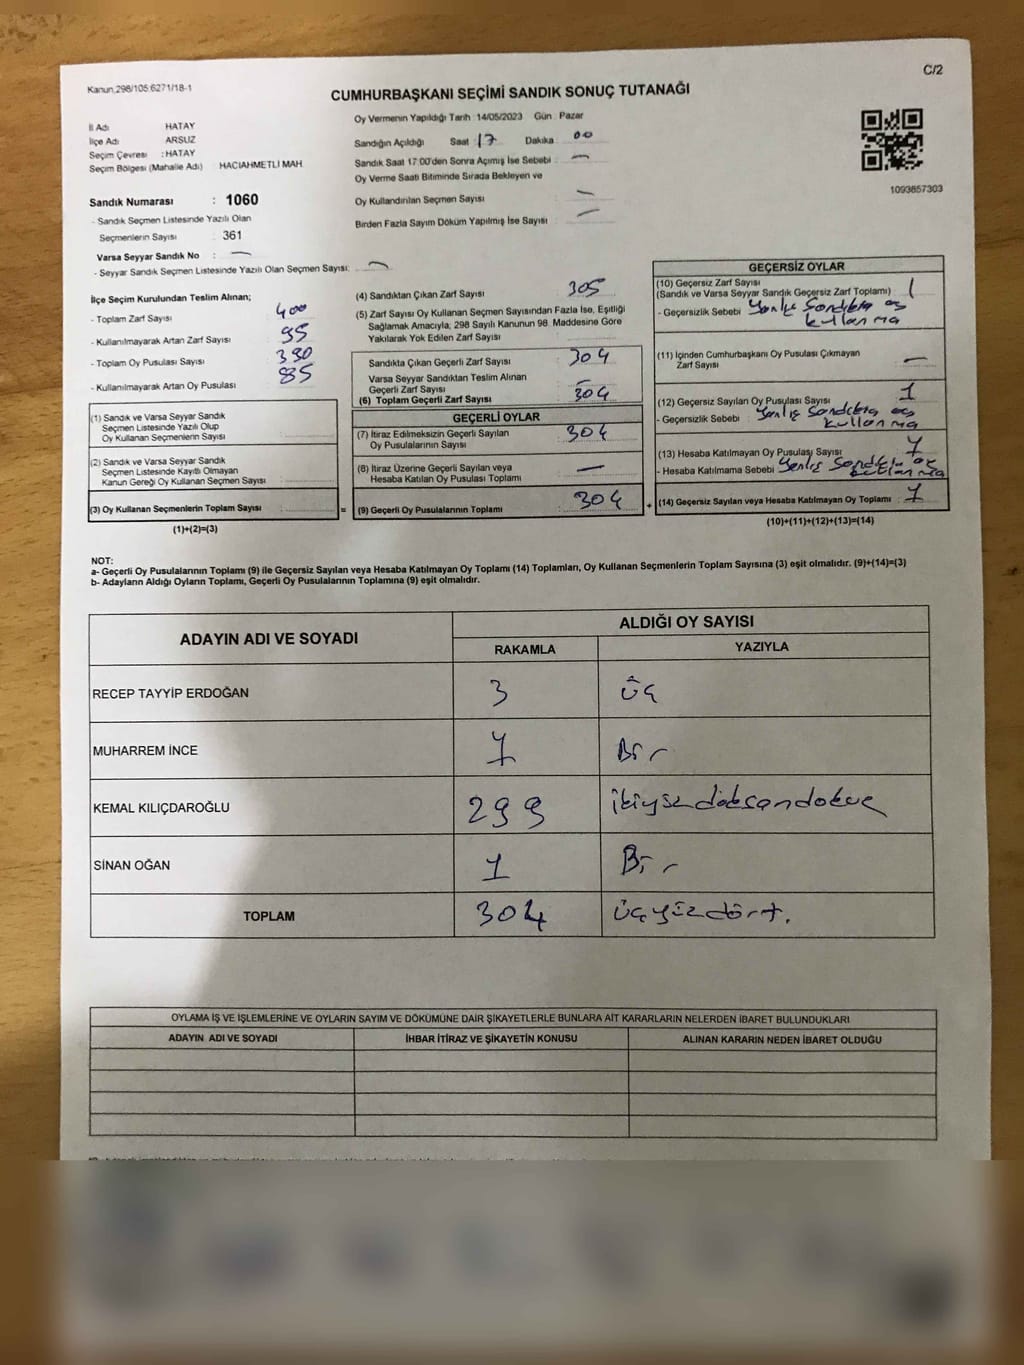 C/2
Kanun,298/105;6271/18-1
CUMHURBAŞKANI SEÇİMİ SANDIK SONUÇ TUTANAĞI
İl Adı HATAY
İlçe Adı ARSUZ
Seçim Çevresi : HATAY
Seçim Bölgesi (Mahalle Adı) HACIAHMETLİ MAH.
Sandık Numarası : 1060
- Sandık Seçmen Listesinde Yazılı Olan
Seçmenlerin Sayısı : 361
Varsa Seyyar Sandık No : —
- Seyyar Sandık Seçmen Listesinde Yazılı Olan Seçmen Sayısı: —
Oy Vermenin Yapıldığı Tarih : 14/05/2023 Gün : Pazar
Sandığın Açıldığı Saat : 17 Dakika : 00
Sandık Saat 17:00'den Sonra Açımış İse Sebebi : —
Oy Verme Saati Bitiminde Sırada Bekleyen ve
Oy Kullandırılan Seçmen Sayısı : —
Birden Fazla Sayım Döküm Yapılmış İse Sayısı : —
1093857303
İlçe Seçim Kurulundan Teslim Alınan;
- Toplam Zarf Sayısı : 400
- Kullanılmayarak Artan Zarf Sayısı : 95
- Toplam Oy Pusulası Sayısı : 390
- Kullanılmayarak Artan Oy Pusulası : 85
(1) Sandık ve Varsa Seyyar Sandık
Seçmen Listesinde Yazılı Olup
Oy Kullanan Seçmenlerin Sayısı :
(2) Sandık ve Varsa Seyyar Sandık
Seçmen Listesinde Kayıtlı Olmayan
Kanun Gereği Oy Kullanan Seçmen Sayısı :
(3) Oy Kullanan Seçmenlerin Toplam Sayısı :
(1)+(2)=(3)
(4) Sandıktan Çıkan Zarf Sayısı : 305
(5) Zarf Sayısı Oy Kullanan Seçmen Sayısından Fazla İse, Eşitliği
Sağlamak Amacıyla; 298 Sayılı Kanunun 98. Maddesine Göre
Yakılarak Yok Edilen Zarf Sayısı :
Sandıkta Çıkan Geçerli Zarf Sayısı : 304
Varsa Seyyar Sandıktan Teslim Alınan
Geçerli Zarf Sayısı : —
(6) Toplam Geçerli Zarf Sayısı : 304
GEÇERLİ OYLAR
(7) İtiraz Edilmeksizin Geçerli Sayılan
Oy Pusulalarının Sayısı : 304
(8) İtiraz Üzerine Geçerli Sayılan veya
Hesaba Katılan Oy Pusulası Toplamı : —
= (9) Geçerli Oy Pusulalarının Toplamı : 304 +
GEÇERSİZ OYLAR
(10) Geçersiz Zarf Sayısı
(Sandık ve Varsa Seyyar Sandık Geçersiz Zarf Toplamı) : 1
- Geçersizlik Sebebi : Yanlış Sandıkta oy
kullanma
(11) İçinden Cumhurbaşkanı Oy Pusulası Çıkmayan
Zarf Sayısı : —
(12) Geçersiz Sayılan Oy Pusulası Sayısı : 1
- Geçersizlik Sebebi : Yanlış Sandıkta oy
kullanma
(13) Hesaba Katılmayan Oy Pusulası Sayısı : 1
- Hesaba Katılmama Sebebi : Yanlış Sandıkta oy
kullanma
(14) Geçersiz Sayılan veya Hesaba Katılmayan Oy Toplamı : 1
(10)+(11)+(12)+(13)=(14)
NOT:
a- Geçerli Oy Pusulalarının Toplamı (9) ile Geçersiz Sayılan veya Hesaba Katılmayan Oy Toplamı (14) Toplamları, Oy Kullanan Seçmenlerin Toplam Sayısına (3) eşit olmalıdır. (9)+(14)=(3)
b- Adayların Aldığı Oyların Toplamı, Geçerli Oy Pusulalarının Toplamına (9) eşit olmalıdır.
ADAYIN ADI VE SOYADI ALDIĞI OY SAYISI
RAKAMLA YAZIYLA
RECEP TAYYİP ERDOĞAN 3 üç
MUHARREM İNCE 1 Bir
KEMAL KILIÇDAROĞLU 299 ikiyüzdoksandokuz
SİNAN OĞAN 1 Bir
TOPLAM 304 üçyüzdört.
OYLAMA İŞ VE İŞLEMLERİNE VE OYLARIN SAYIM VE DÖKÜMÜNE DAİR ŞİKAYETLERLE BUNLARA AİT KARARLARIN NELERDEN İBARET BULUNDUKLARI
ADAYIN ADI VE SOYADI İHBAR İTİRAZ VE ŞİKAYETİN KONUSU ALINAN KARARIN NEDEN İBARET OLDUĞU